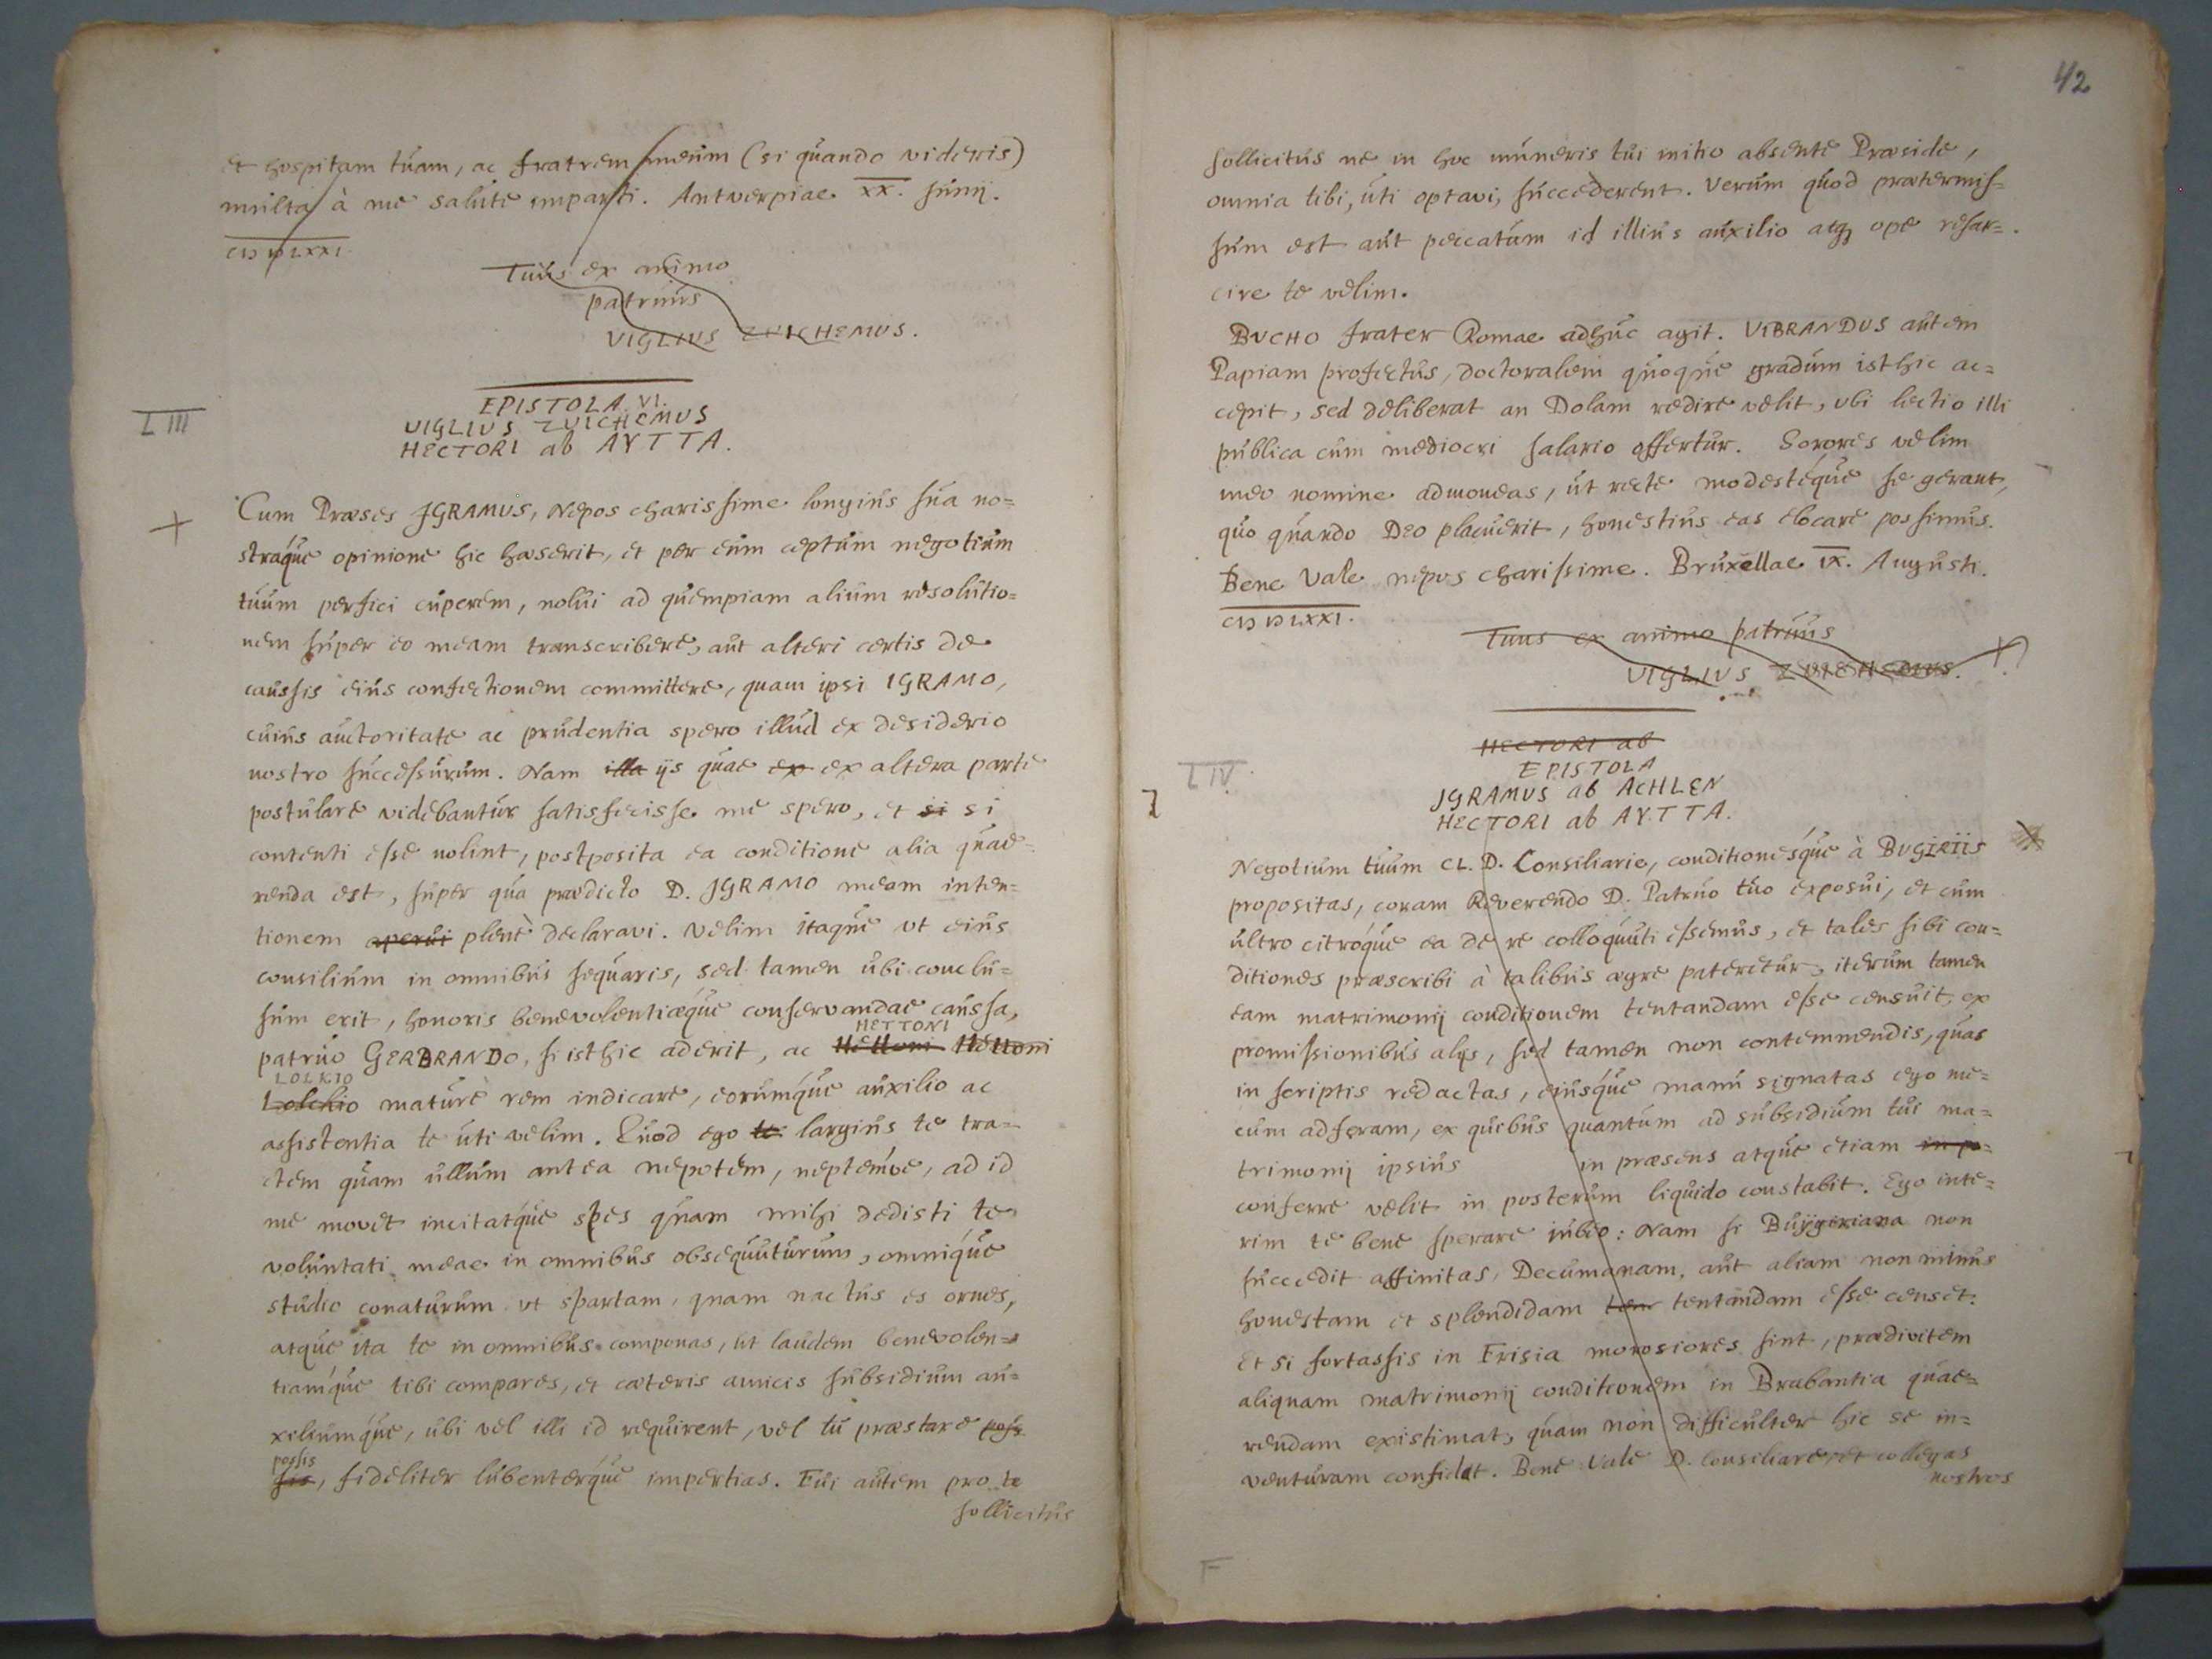 et hospitam tuam, ac fratrem meum (si quando videris)
multa à me salute imparti. Antverpiae XX. Junij.
CIↃ IↃ LXXI.
Tuus ex animo
patruus
VIGLIUS ZUICHEMUS.
LIII
EPISTOLA VI.
VIGLIUS ZUICHEMUS
HECTORI ab AYTTA.
Cum Præses IGRAMUS, Nepos charissime longius sua no=
straque opinione hic hæserit, et per eum cœptum negotium
tuum perfici cuperem, nolui ad quempiam alium resolutio=
nem super eo meam transcribere, aut alteri certis de
caussis eius confectionem committere, quam ipsi IGRAMO,
cuius auctoritate ac prudentia spero illud ex desiderio
nostro successurum. Nam illa ijs quae ex ex altera parte
postulare videbantur satisfecisse me spero, et si si
contenti esse nolint, postposita ea conditione alia quae=
renda est, super qua prædicto D. IGRAMO meam inten=
tionem aperui plenè declaravi. Velim itaque ut eius
consilium in omnibus sequaris, sed tamen ubi conclu=
sum erit, honoris benevolentiæque conservandae caussa,
HETTONI
patruo GERBRANDO, si isthic aderit, ac Hettoni Hettoni
LOLKIO
Lolchio maturè rem indicare, eorumque auxilio ac
assistentia te uti velim. Quod ego te largius te tra=
ctem quam ullum antea nepotem, neptemve, ad id
me movet incitatque spes quam mihi dedisti te
voluntati meae in omnibus obsequuturum, omnique
studio conaturum ut spartam, quam nactus es ornes,
atque ita te in omnibus componas, ut laudem benevolen=
tiamque tibi compares, et cæteris amicis subsidium au=
xiliumque, ubi vel illi id requirent, vel tu præstare poss
possis
sis, fideliter lubenterque impertias. Fui autem pro te
sollicitus
42
sollicitus ne in hoc muneris tui initio absente Præside,
omnia tibi, uti optavi, succederent. Verum quod prætermis=
sum est aut peccatum id illius auxilio atq; ope resar=
cire te velim.
BUCHO frater Romae adhuc agit. VIBRANDUS autem
Papiam profectus, doctoralem quoque gradum isthic ac=
cepit, sed deliberat an Dolam redire velit, ubi lectio illi
publica cum mediocri salario offertur. Sorores velim
meo nomine admoneas, ut recte modestéque se gerant,
quo quando Deo placuerit, honestius eas elocare possimus.
Bene Vale nepos charissime. Bruxellae IX. Augusti.
CIↃ IↃ LXXI.
Tuus ex animo patruus
VIGLIUS ZUICHEMUS.
HECTORI ab
LIV.
EPISTOLA
IGRAMUS ab ACHLEN
HECTORI ab AYTTA.
Negotium tuum CL. D. Consiliarie, conditionesque à BUGIRIIS
propositas, coram Reverendo D. Patruo tuo exposui, et cum
ultro citroque ea de re colloquuti essemus, et tales sibi con=
ditiones præscribi à talibus ægre pateretur, iterum tamen
eam matrimonij conditionem tentandam esse censuit, ex
promissionibus alijs, sed tamen non contemnendis, quas
in scriptis redactas, eiusque manu signatas ego me=
cum adferam, ex quibus quantum ad subsidium tui ma=
trimonij ipsius in præsens atque etiam in po=
conferre velit in posterum liquido constabit. Ego inte=
rim te bene sperare iubeo: Nam si Buygeriana non
succedit affinitas, Decumanam, aut aliam non minus
honestam et splendidam ten tentandam esse censet.
Et si fortassis in Frisia morosiores sint, prædivitem
aliquam matrimonij conditionem in Brabantia quae=
rendam existimat, quam non difficulter hic se in=
venturam confidat. Bene Vale D. Consiliare, et collegas
nostros
F